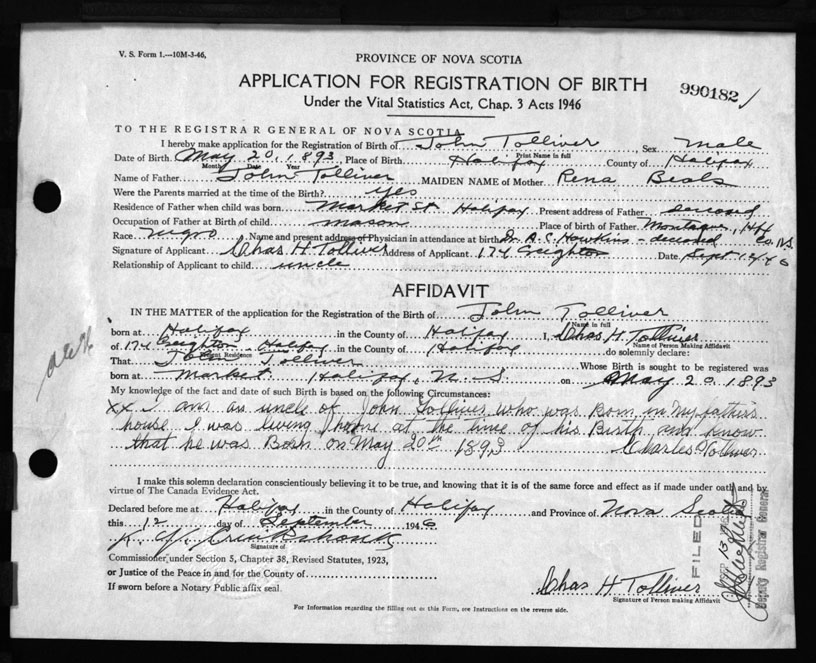 V. S. Form 1.—10M-3-46,
PROVINCE OF NOVA SCOTIA
APPLICATION FOR REGISTRATION OF BIRTH
990182
Under the Vital Statistics Act, Chap. 3 Acts 1946
TO THE REGISTRAR GENERAL OF NOVA SCOTIA
I hereby make application for the Registration of Birth of John Tolliver Sex Male
Print Name in full
Date of Birth May 20, 1893, Place of Birth Halifax County of Halifax
Month Date Year
Name of Father John Tolliver MAIDEN NAME of Mother Rena Beals
Were the Parents married at the time of the Birth? yes
Residence of Father when child was born Market St Halifax Present address of Father deceased
Occupation of Father at Birth of child mason Place of birth of Father Montague, Hfx Co. N.S.
Race Negro Name and present address of Physician in attendance at birth Dr. A. C. Hawkins - deceased
Signature of Applicant Chas H Tolliver Address of Applicant 174 Creighton Date Sept 12 46
Relationship of Applicant to child uncle
AFFIDAVIT
IN THE MATTER of the application for the Registration of the Birth of John Tolliver
Name in full
born at Halifax in the County of Halifax I, Chas H. Tolliver
Name of Person Making Affidavit
of 174 Creighton - Halifax in the County of Halifax do solemnly declare:
Present Residence
That John Tolliver Whose Birth is sought to be registered was
born at Market Halifax, N.S. on May 20 1893
My knowledge of the fact and date of such Birth is based on the following Circumstances:
xx I am an uncle of John Tolliver who was Born in My fathers
house I was living home at the time of his Birth and know
that he was Born on May 20th 1893 Charles Tolliver
I make this solemn declaration conscientiously believing it to be true, and knowing that it is of the same force and effect as if made under oath and by
virtue of The Canada Evidence Act.
Declared before me at Halifax in the County of Halifax and Province of Nova Scotia
this 12 day of September 1946
Signature of
Commissioner under Section 5, Chapter 38, Revised Statutes, 1923,
or Justice of the Peace in and for the County of
If sworn before a Notary Public affix seal.
Chas H Tolliver
Signature of Person making Affidavit
FILED
Deputy Registrar General
For Information regarding the filling out of this Form, see Instructions on the reverse side.